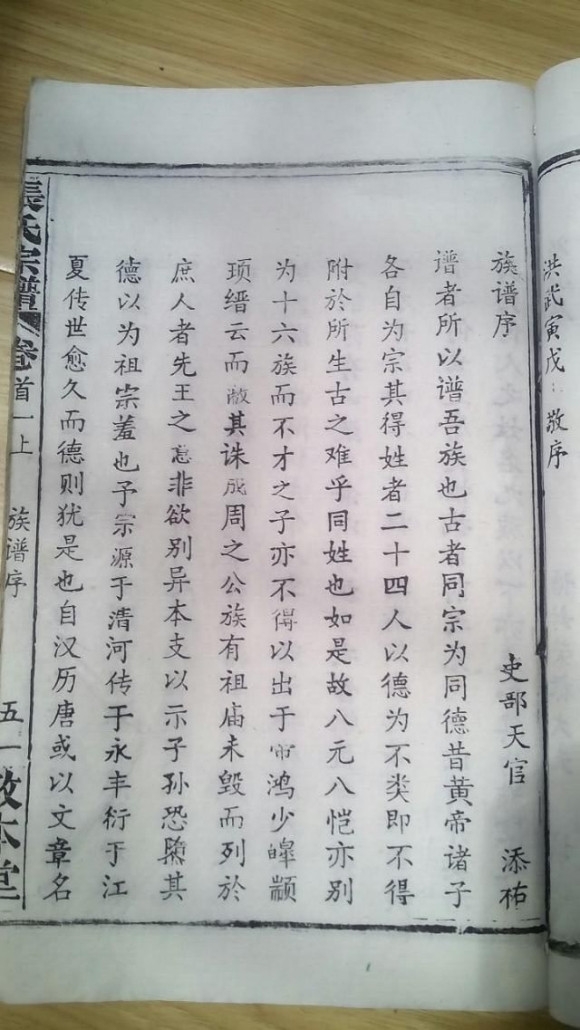 洪武寅戌 敬序
族谱序
吏部天官 添祐
谱者所以谱吾族也古者同宗为同德昔黄帝诸子
各自为宗其得姓者二十四人以德为不类即不得
附於所生古之难乎同姓也如是故八元八恺亦别
为十六族而不才之子亦不得以出于帝鸿少皞颛
顼缙云而敝其诛成周之公族有祖庙未毁而列於
庶人者先王之意非欲别异本支以示子孙恐隳其
德以为祖宗羞也予宗源于清河传于永丰衍于江
夏传世愈久而德则犹是也自汉历唐或以文章名
張氏宗譜 卷首一上 族谱序 五一 敦本堂